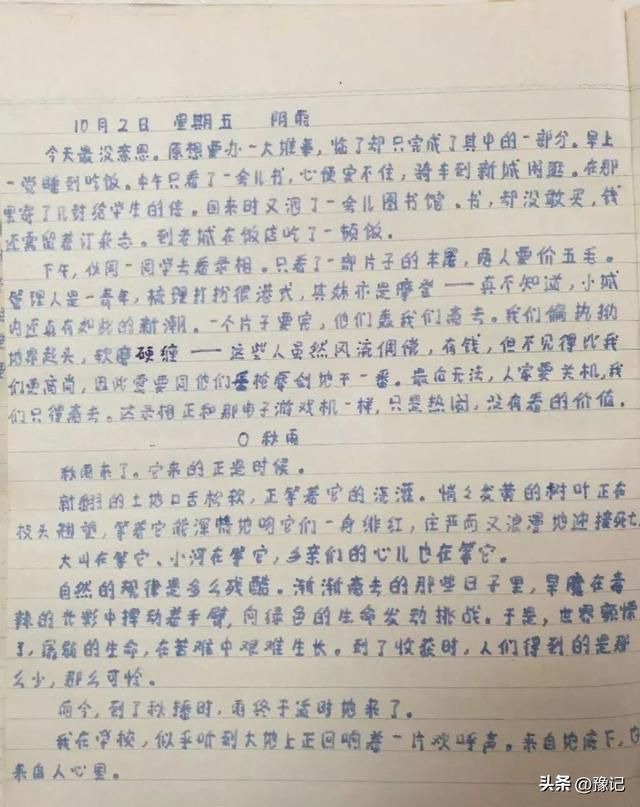 10月2日 星期五 阴雨
今天最没意思。原想要办一大堆事，临了却只完成了其中的一部分。早上
一觉睡到吃饭。中午只看了一会儿书，心便安不住，骑车到新城闲逛。在那
里寄了几封给学生的信。回来时又泡了一会儿图书馆。书，却没敢买，钱
还需留着订杂志。到老城在饭店吃了一顿饭。
下午，伙同一同学去看录相。只看了一部片子的末尾，两人要价五毛。
管理人是一青年，梳理打扮很港式，其妹亦是摩登——真不知道，小城
内还真有如此的新潮。一个片子要完，他们轰我们离去。我们偏执拗
地昂起头，软磨硬缠——这些人虽然风流倜傥，有钱，但不见得比我
们更高尚，因此需要同他们唇枪舌剑地干一番。最后无法，人家要关机，我
们只得离去。这录相正和那电子游戏机一样，只是热闹，没有看的价值。
○ 秋雨
秋雨来了。它来的正是时候。
新翻的土地口舌松软，正等着它的浇灌。悄悄发黄的树叶正在
枝头翘望，等着它能深情地吻它们一身绯红，庄严而又浪漫地迎接死亡
大山在等它、小河在等它，乡亲们的心儿也在等它。
自然的规律是多么残酷。渐渐离去的那些日子里，旱魔在毒
辣的光影中挥动着手臂，向绿色的生命发动挑战。于是，世界颤慄
了，孱弱的生命，在苦难中艰难生长。到了收获时，人们得到的是那
么少，那么可怜。
而今，到了秋播时，雨终于适时地来了。
我在学校，似乎听到大地上正回响着一片欢呼声。来自地底下，也
来自人心里。
头条 @豫记